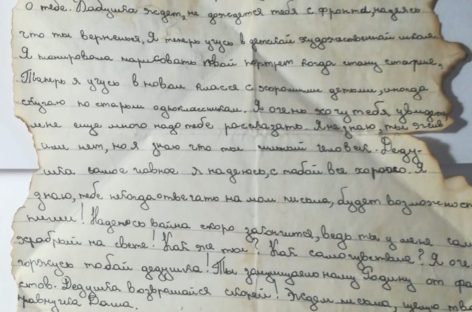 о тебе. Бабушка ждет, не дождется тебя с фронта, надеясь
что ты вернешься, Я теперь учусь в детской художественной школе.
Я планирова нарисовать твой портрет когда стану старше,
Теперь я учусь в новом класса с хорошими детьми, иногда
скучаю по старым одноклассникам. Я очень хочу тебя увидеть
мне еще много надо тебе рассказать. Я не знаю, ты жив
или нет, но я знаю что ты человек. Деду-
шка самое главное я надеюсь, с тобой все хорошо. Я
знаю, тебе некогда отвечать на мои письма, будет возможност
пиши! Надеюсь вайна скоро закончится, ведь ты у меня сам
храбрый на свете! Как же ты? Как самочувствие? Я оче
горжусь тобай дедушка! Ты защищаешь нашу Родину от фа
стов. Дедушка возвращайся скорей! Ждем письма, целую тво
равнучка Даша.